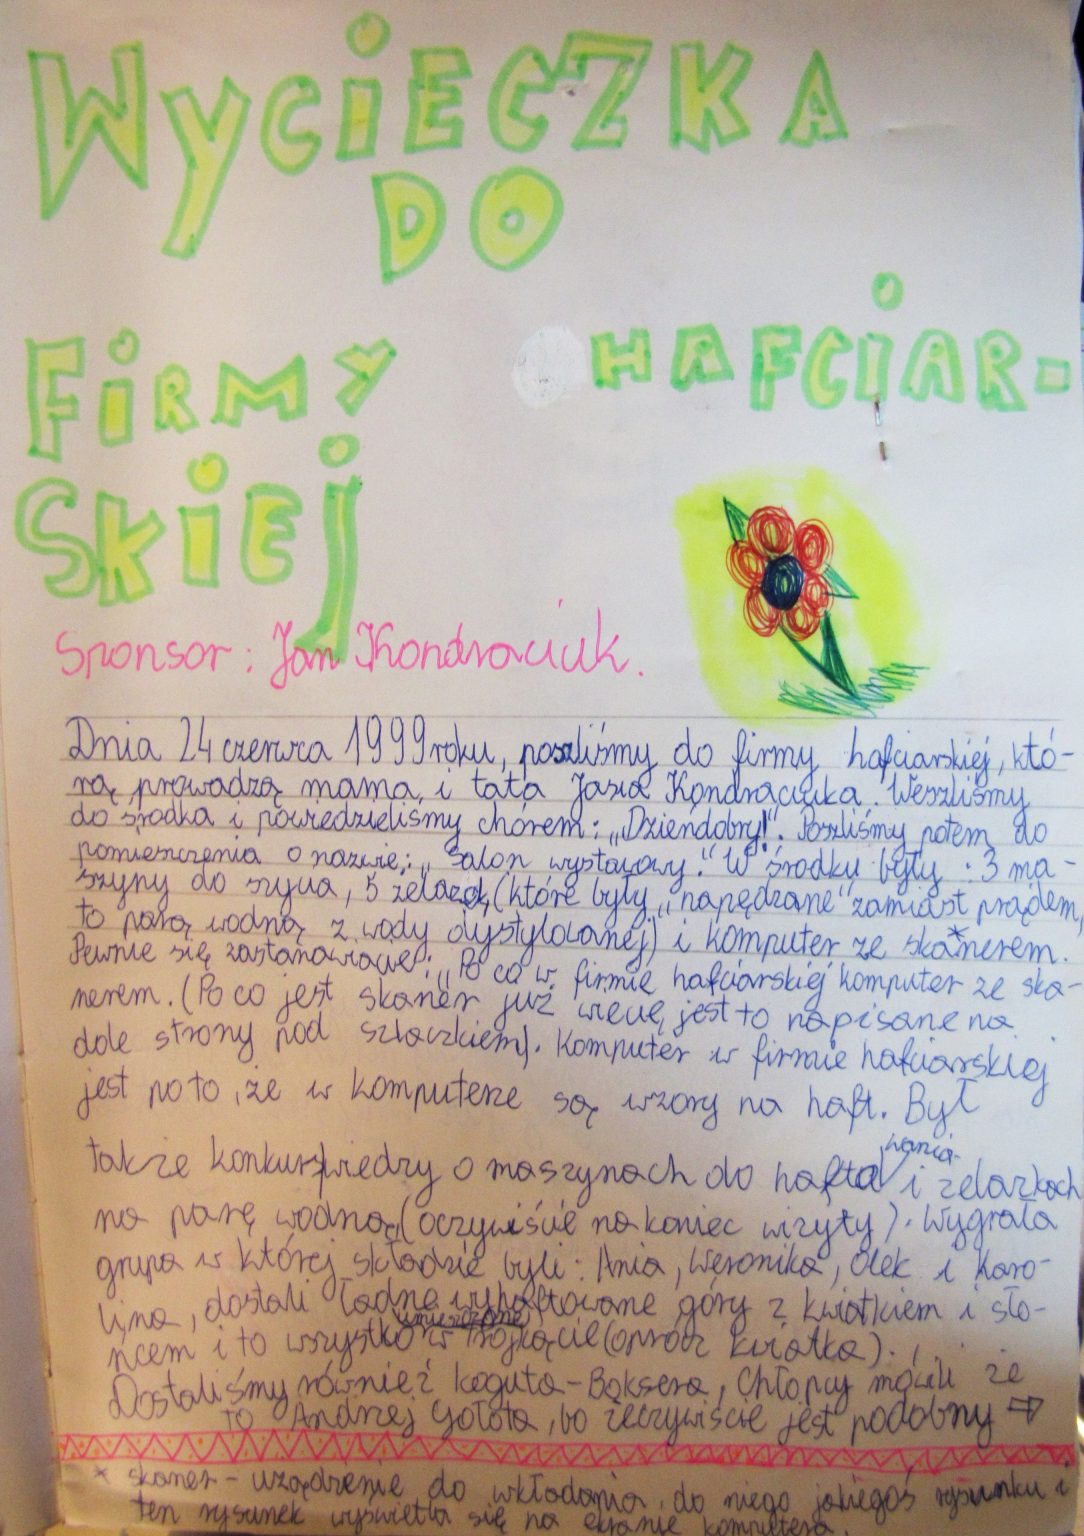 WYCIECZKA
DO
FIRMY HAFCIAR-
SKIEJ
Sponsor: Jan Kondraciuk.
Dnia 24 czerwca 1999 roku, poszliśmy do firmy hafciarskiej, któ-
rą prowadzą mama i tata Jasia Kondraciuka. Weszliśmy
do środka i powiedzieliśmy chórem: „Dzieńdobry!". Poszliśmy potem do
pomieszczenia o nazwie: „Salon wystawowy." W środku były: 3 ma-
szyny do szycia, 5 żelazek, (które były „napędzane" zamiast prądem,
to parą wodną z wody dystylowanej) i komputer ze ska*nerem.
Pewnie się zastanawiacie: „Po co w firmie hafciarskiej komputer ze ska-
nerem. (Po co jest skaner już wiecię, jest to napisane na
dole strony pod szlaczkiem). Komputer w firmie hafciarskiej
jest po to, że w komputerze są wzory na haft. Był
także konkurs wiedzy o maszynach do haftowania i żelazkach
na parę wodną (oczywiście na koniec wizyty). Wygrała
grupa w której składzie byli: Ania, Weronika, Olek i Karo-
lina, dostali ładne wyhaftowane góry z kwiatkiem i sło-
ńcem i to wszystko w trójkącie (oprócz kwiatka).
Dostaliśmy również koguta-Boksera, Chłopcy mówili że
to Andrzej Gołota, bo rzeczywiście jest podobny ⇨
* skaner - urządzenie do wkładania do niego jakiegoś rysunku i
ten rysunek wyświetla się na ekranie komputera.